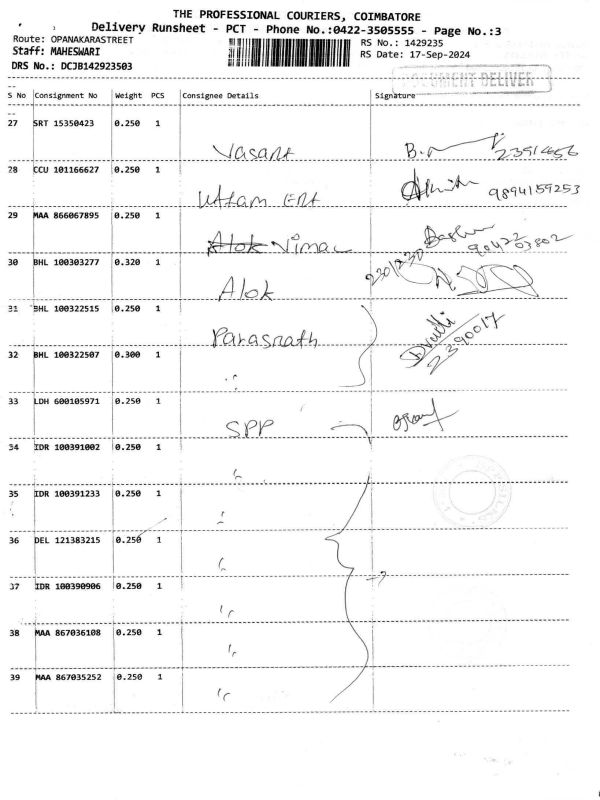 THE PROFESSIONAL COURIERS, COIMBATORE
Delivery Runsheet - PCT - Phone No.:0422-3505555 - Page No.:3
Route: OPANAKARASTREET
RS No.: 1429235
Staff: MAHESWARI
RS Date: 17-Sep-2024
DRS No.: DCJB142923503
DOCUMENT DELIVER
S No Consignment No Weight PCS Consignee Details Signature
27 SRT 15350423 0.250 1
Vasant B. 2391456
28 CCU 101166627 0.250 1
Uttam Ent 9894159253
29 MAA 866067895 0.250 1
Alok Vimal 90422 03802
30 BHL 100303277 0.320 1
Alok 2301230
31 BHL 100322515 0.250 1
Parasnath 2390017
32 BHL 100322507 0.300 1
33 LDH 600105971 0.250 1
SPP
34 IDR 100391002 0.250 1
35 IDR 100391233 0.250 1
36 DEL 121383215 0.250 1
37 IDR 100390906 0.250 1
38 MAA 867036108 0.250 1
39 MAA 867035252 0.250 1